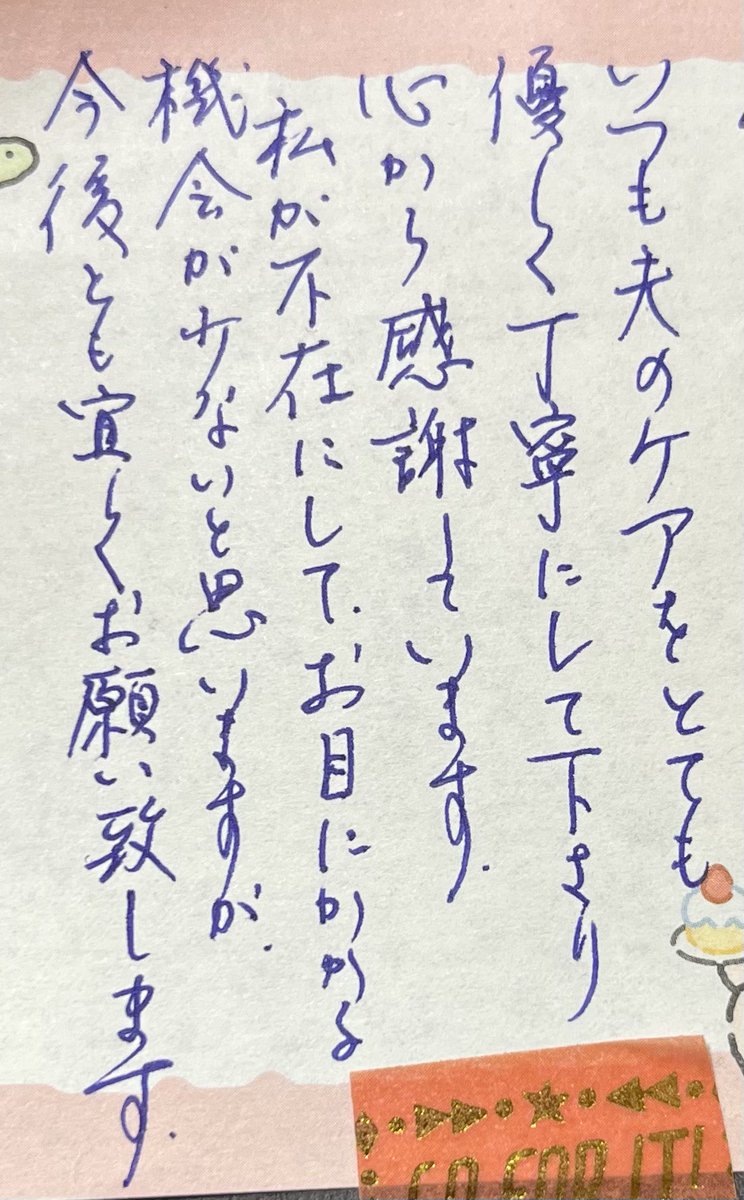 いつも夫のケアをとても
優しく丁寧にして下さり
心から感謝しています.
私が不在にして、お目にかかる
機会が少ないと思いますが、
今後とも宜しくお願い致します.
GO FOR IT!